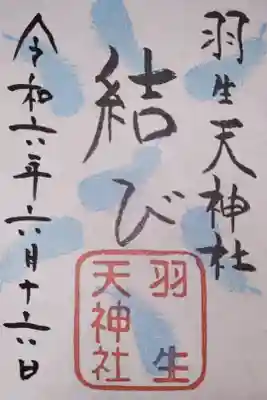 羽生天神社
結び
羽生
天神社
令和六年六月十六日